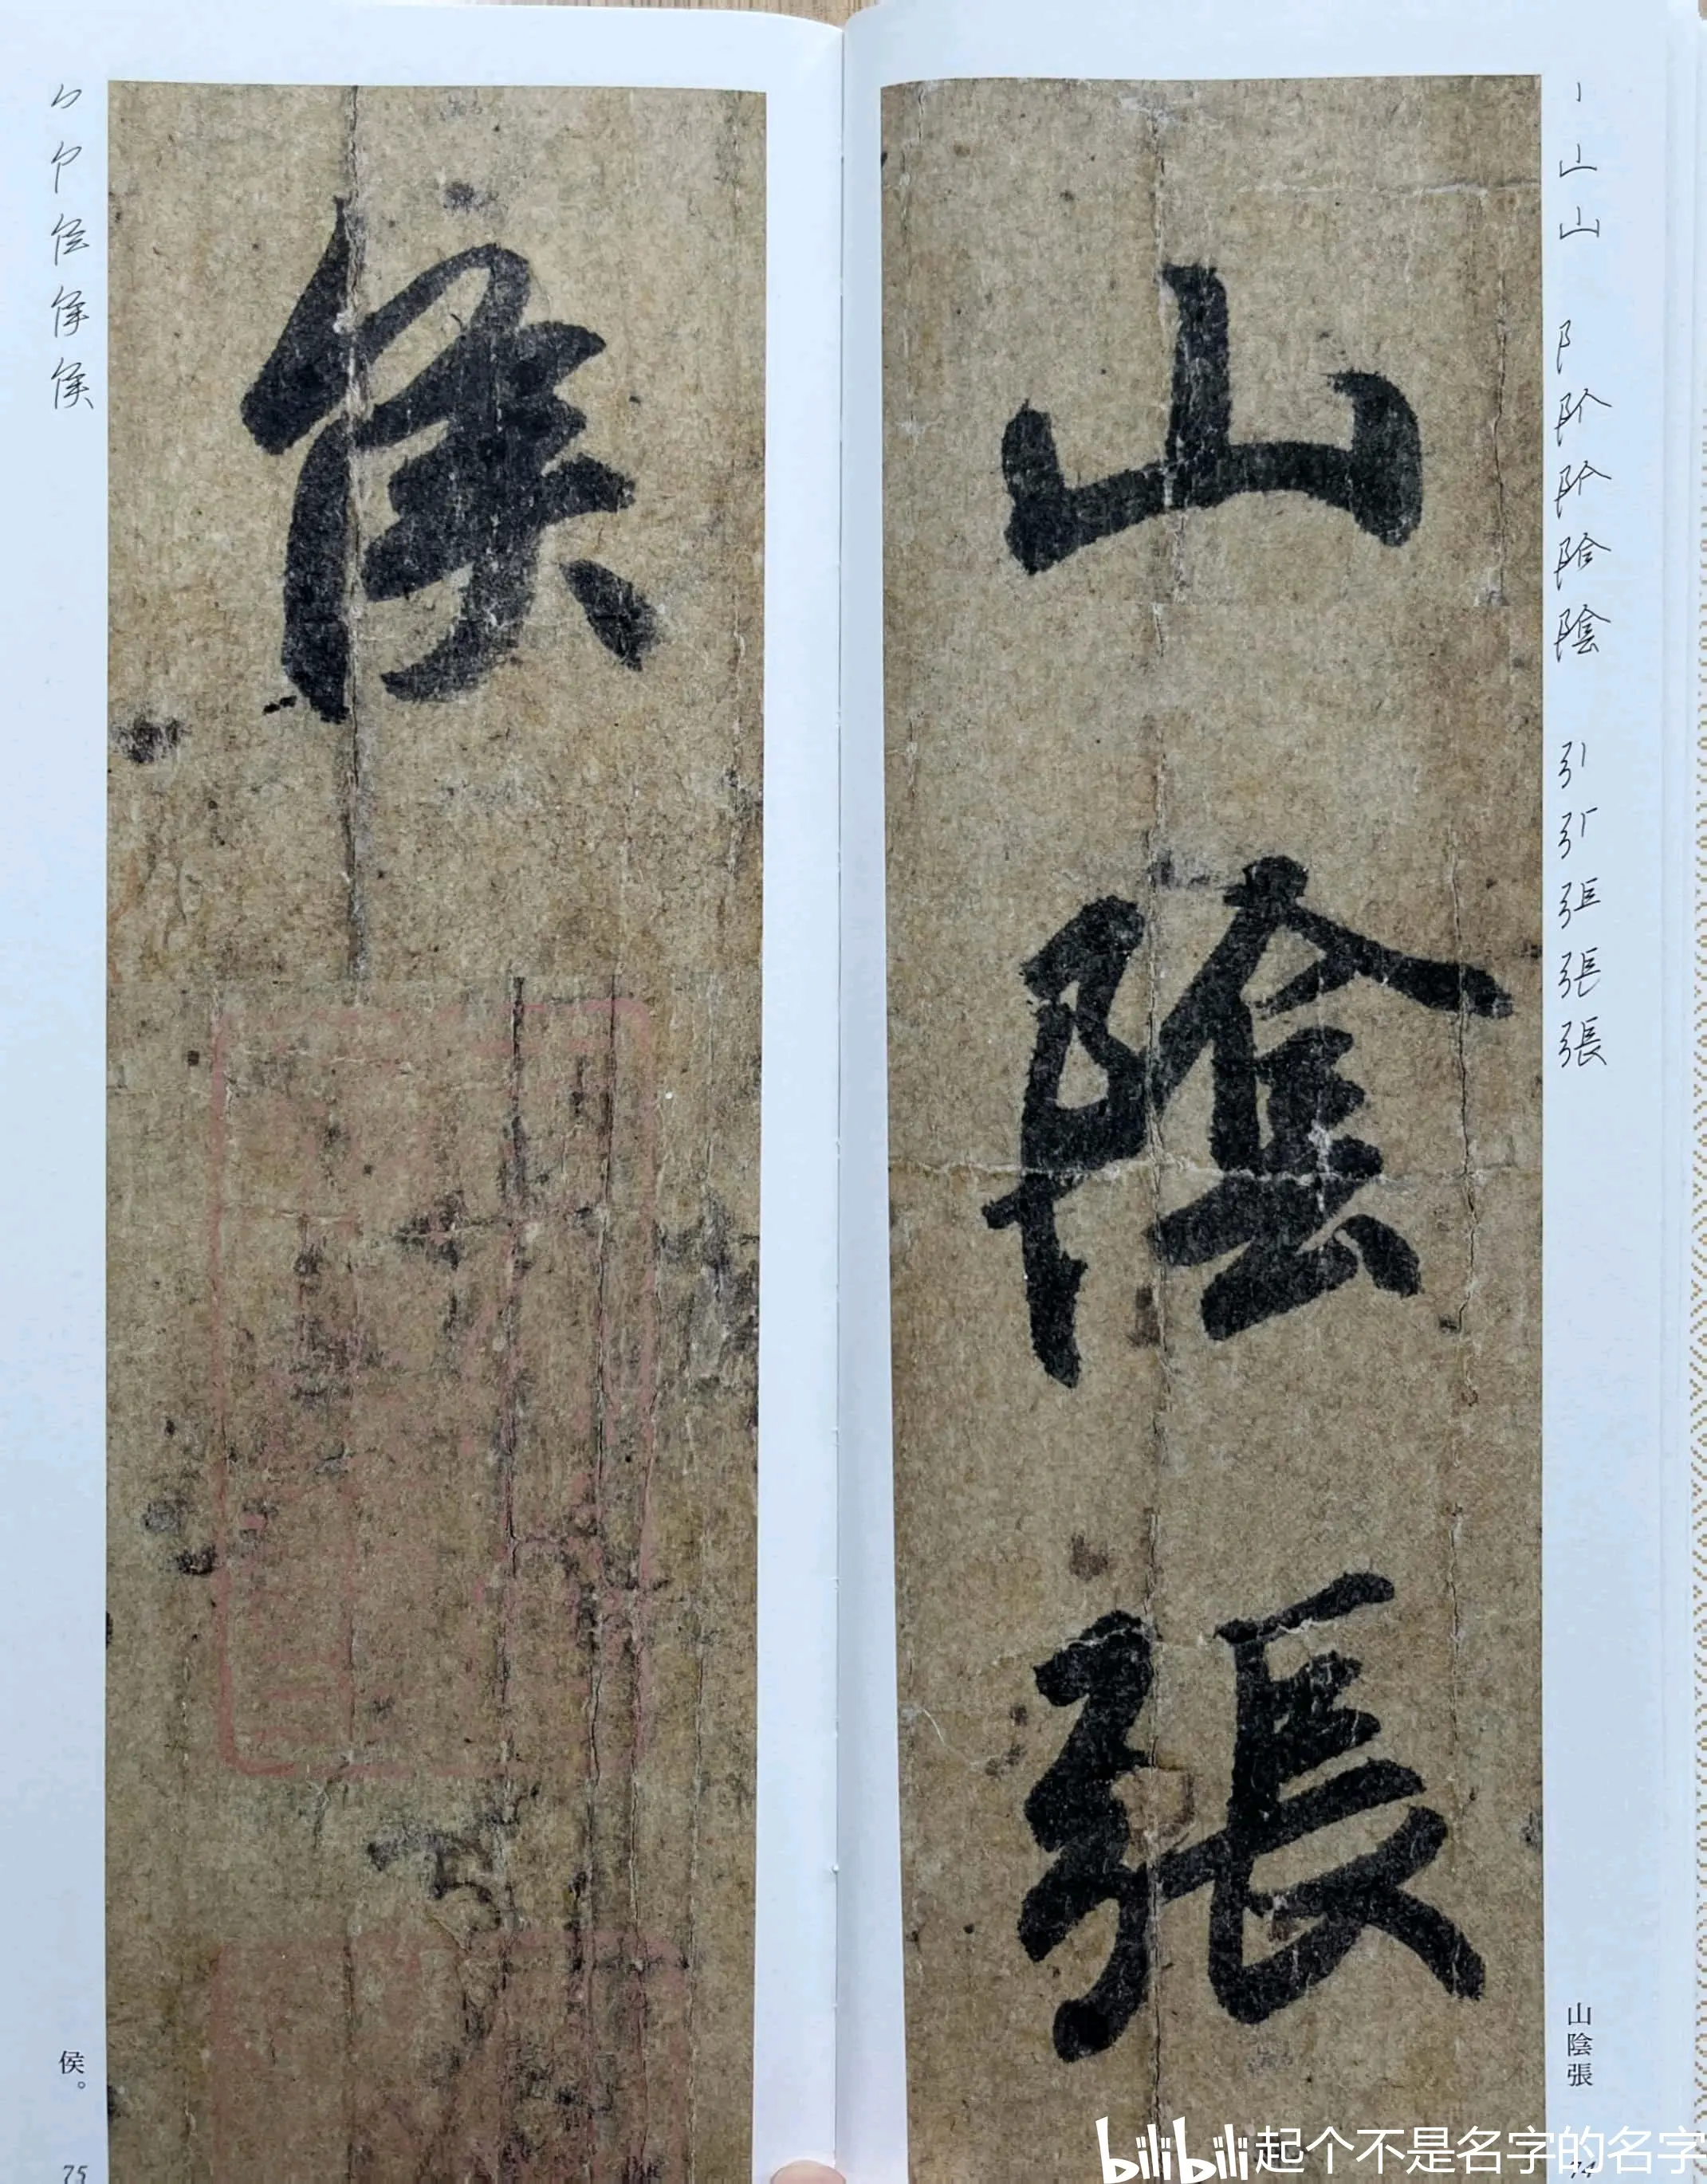 山陰張
山陰張
74
侯
侯。
75
bilibili 起个不是名字的名字